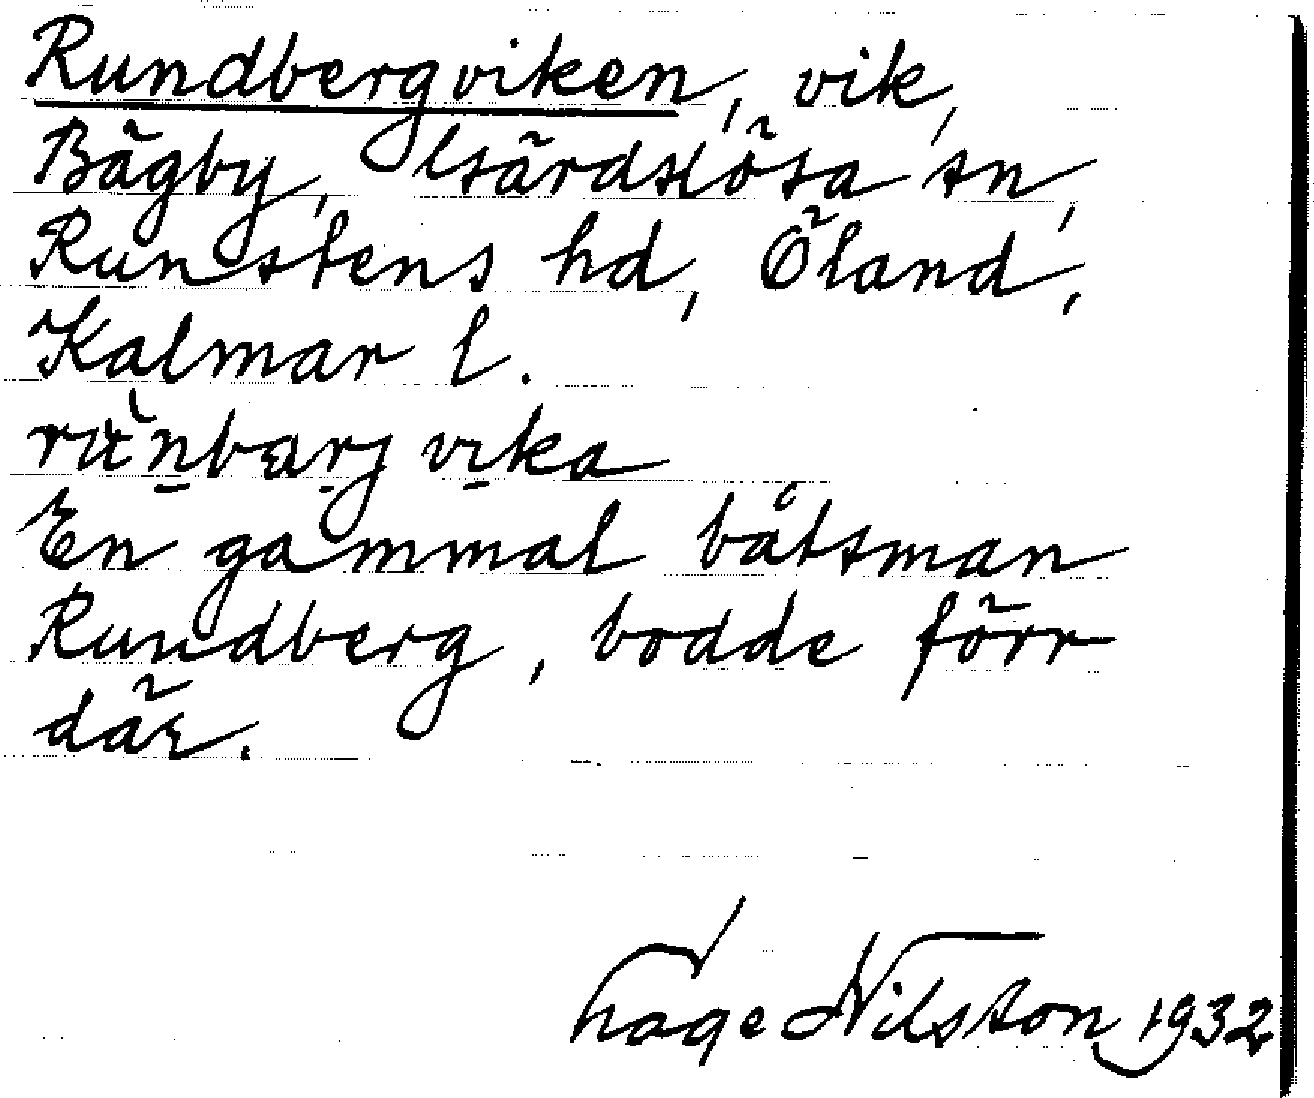 Rundbergviken, vik,
Bägby, Gärdslösa sn,
Runstens hd, Öland,
Kalmar l.
En gammal båtsman
Rundberg, bodde förr
där.
Tage Nilston 1932